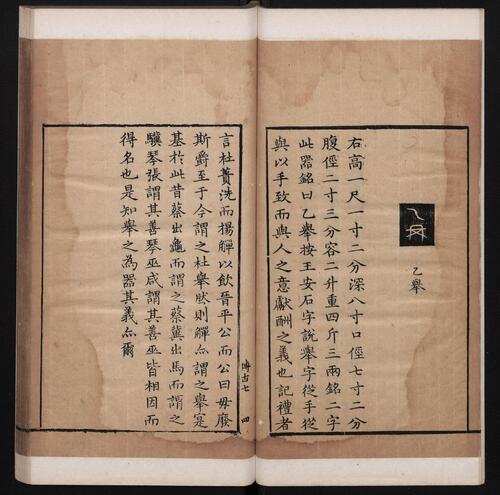 乙舉
右高一尺一寸二分深八寸口徑七寸二分
腹徑二寸三分容二升重四斤三兩銘二字
此器銘曰乙舉按王安石字說舉字從手從
與以手致而與人之意獻酬之義也記禮者
言杜蕢洗而揚觶以飲晉平公而公曰毋廢
斯爵至于今謂之杜舉然則觶亦謂之舉寔
基於此昔蔡出龜而謂之蔡冀出馬而謂之
驥琴張謂其善琴巫咸謂其善巫皆相因而
得名也是知舉之為器其義亦爾
博古七
四